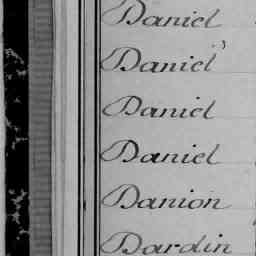 Daniel
Daniel
Daniel
Daniel
Danion
Dardin